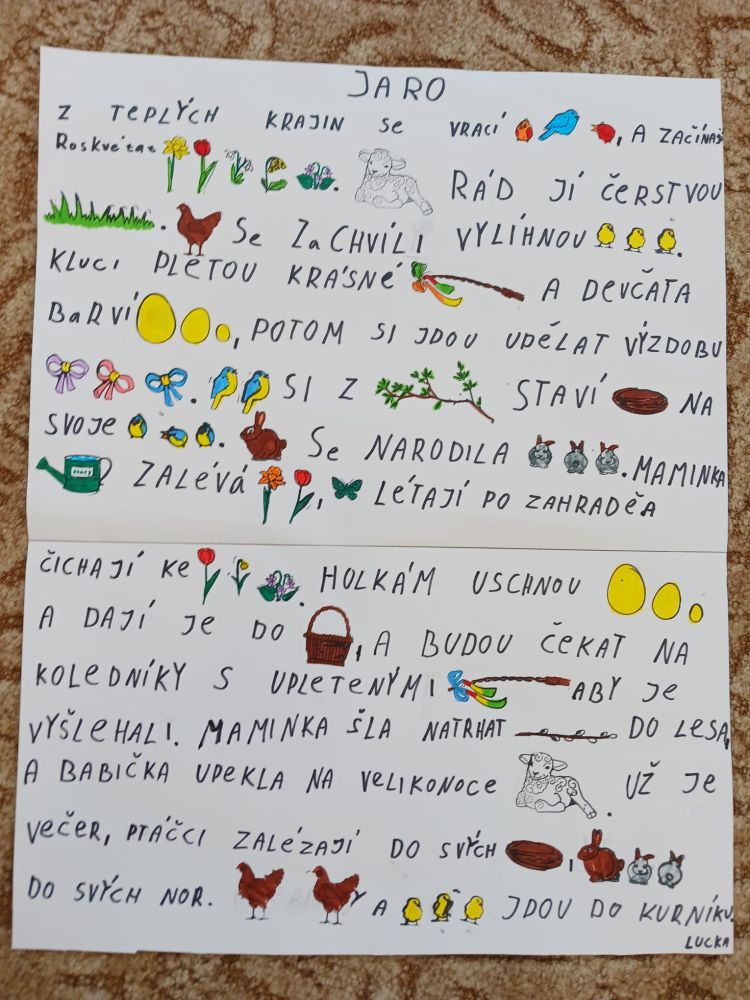 JARO
Z TEPLÝCH KRAJIN SE VRACÍ , A ZAČÍNAJÍ
Roskvétat . RÁD JÍ ČERSTVOU
. SE ZaCHVÍLI VYLÍHNOU .
KLUCI PLETOU KRÁSNÉ A DEVČATA
BaRVÍ , POTOM SI JDOU UDĚLAT VÝZDOBU
. SI Z STAVÍ NA
SVOJE . SE NARODILA . MAMINKA
ZALÉVÁ , LÉTAJÍ PO ZAHRADĚA
ČICHAJÍ KE . HOLKÁM USCHNOU
A DAJÍ JE DO , A BUDOU ČEKAT NA
KOLEDNÍKY S UPLETENÝMI ABY JE
VYŠLEHALI. MAMINKA ŠLA NATRHAT DO LESA,
A BABIČKA UPEKLA NA VELIKONOCE . UŽ JE
VEČER, PTÁČCI ZALÉZAJÍ DO SVÝCH ,
DO SVÝCH NOR. Y A JDOU DO KURNÍKU.
LUCKA